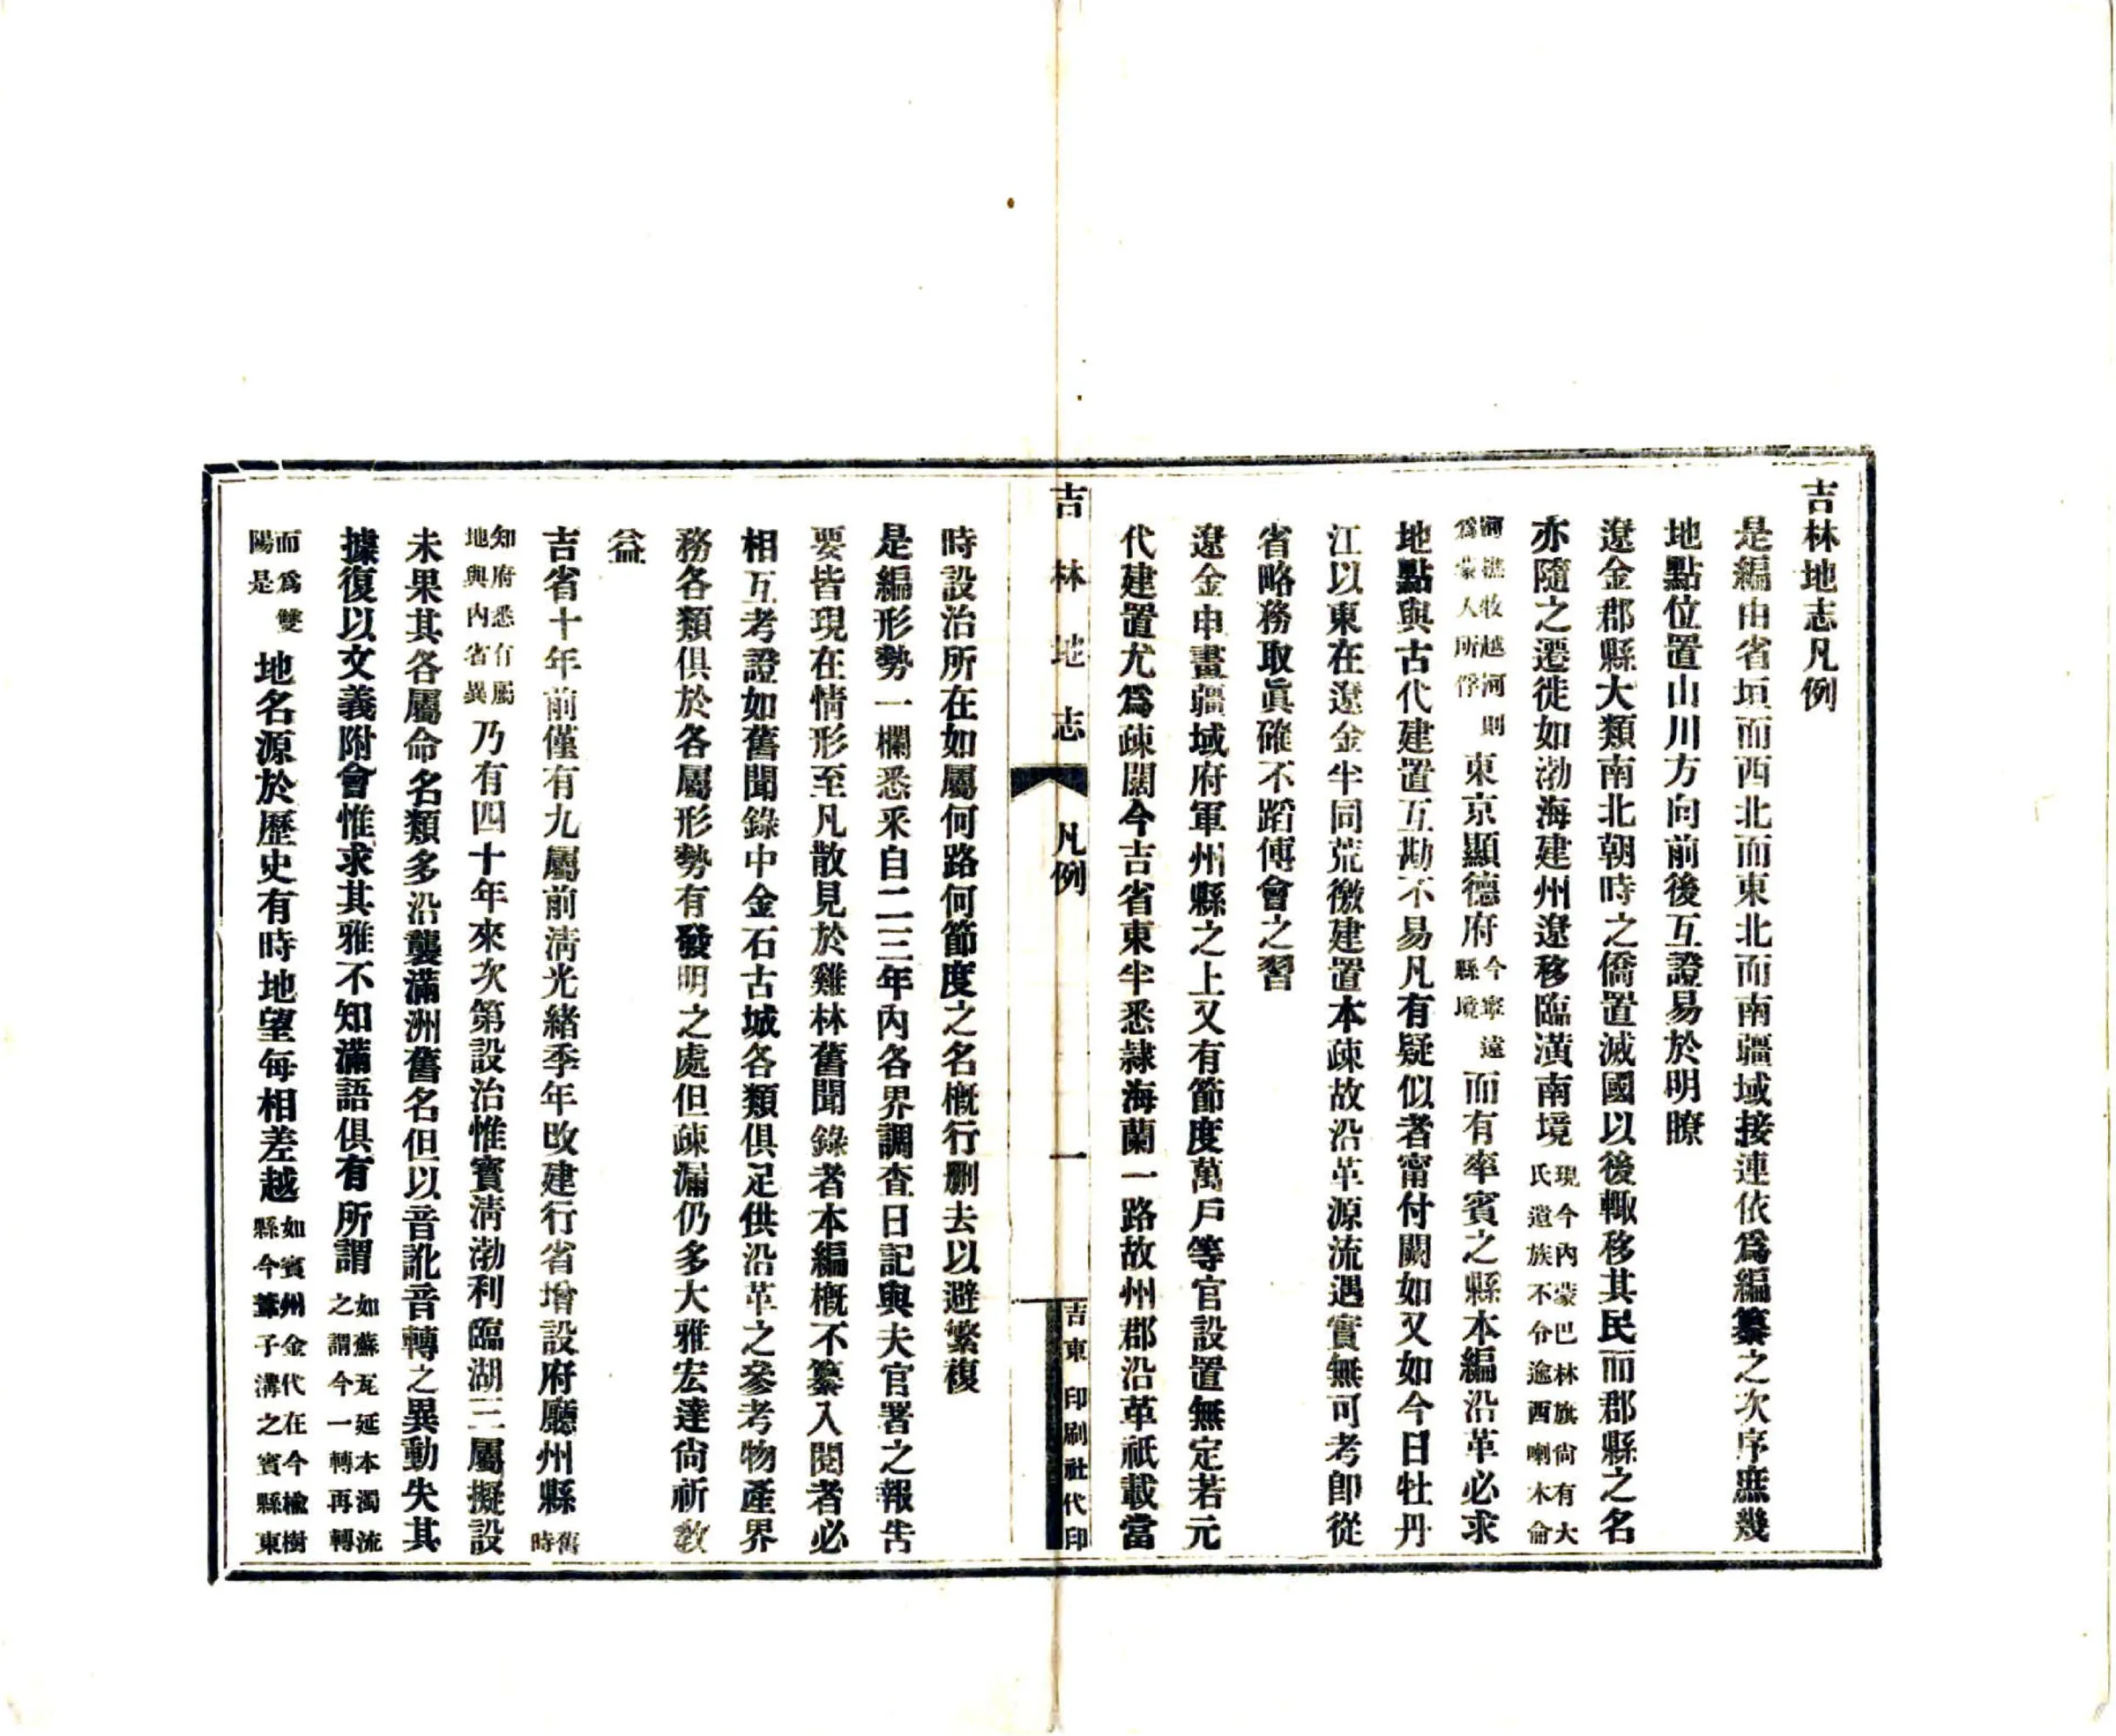 吉林地志凡例
是編由省垣而西北而東北而南疆域接連依爲編纂之次序庶幾
地點位置山川方向前後互證易於明瞭
遼金郡縣大類南北朝時之僑置滅國以後輙移其民而郡縣之名
亦隨之遷徙如渤海建州遼移臨潢南境現今內蒙巴林旗尙有大氏遺族不令迤西喇木倫
河漁牧越河則爲蒙人所俘東京顯德府今寧遠縣境而有率賓之縣本編沿革必求
地點與古代建置互勘不易凡有疑似者甯付闕如又如今日牡丹
江以東在遼金半同荒徼建置本疎故沿革源流遇實無可考卽從
省略務取眞確不蹈傅會之習
遼金申畫疆域府軍州縣之上又有節度萬戶等官設置無定若元
代建置尤爲疎闊今吉省東半悉隷海蘭一路故州郡沿革祇載當
吉林地志
凡例
一
吉東印刷社代印
時設治所在如屬何路何節度之名槪行删去以避繁複
是編形勢一欄悉采自二三年內各界調査日記與夫官署之報吿
要皆現在情形至凡散見於雞林舊聞錄者本編槪不纂入閱者必
相互考證如舊聞錄中金石古城各類俱足供沿革之參考物產界
務各類俱於各屬形勢有發明之處但疎漏仍多大雅宏達尙祈敎
益
吉省十年前僅有九屬前淸光緒季年改建行省增設府廳州縣舊時
知府悉有屬地與內省異乃有四十年來次第設治惟寶淸渤利臨湖三屬擬設
未果其各屬命名類多沿襲滿洲舊名但以音訛音轉之異動失其
據復以文義附會惟求其雅不知滿語俱有所謂如蘇瓦延本濁流之謂今一轉再轉
而爲雙陽是地名源於歷史有時地望每相差越如賓州金代在今楡樹縣今葦子溝之賓縣東